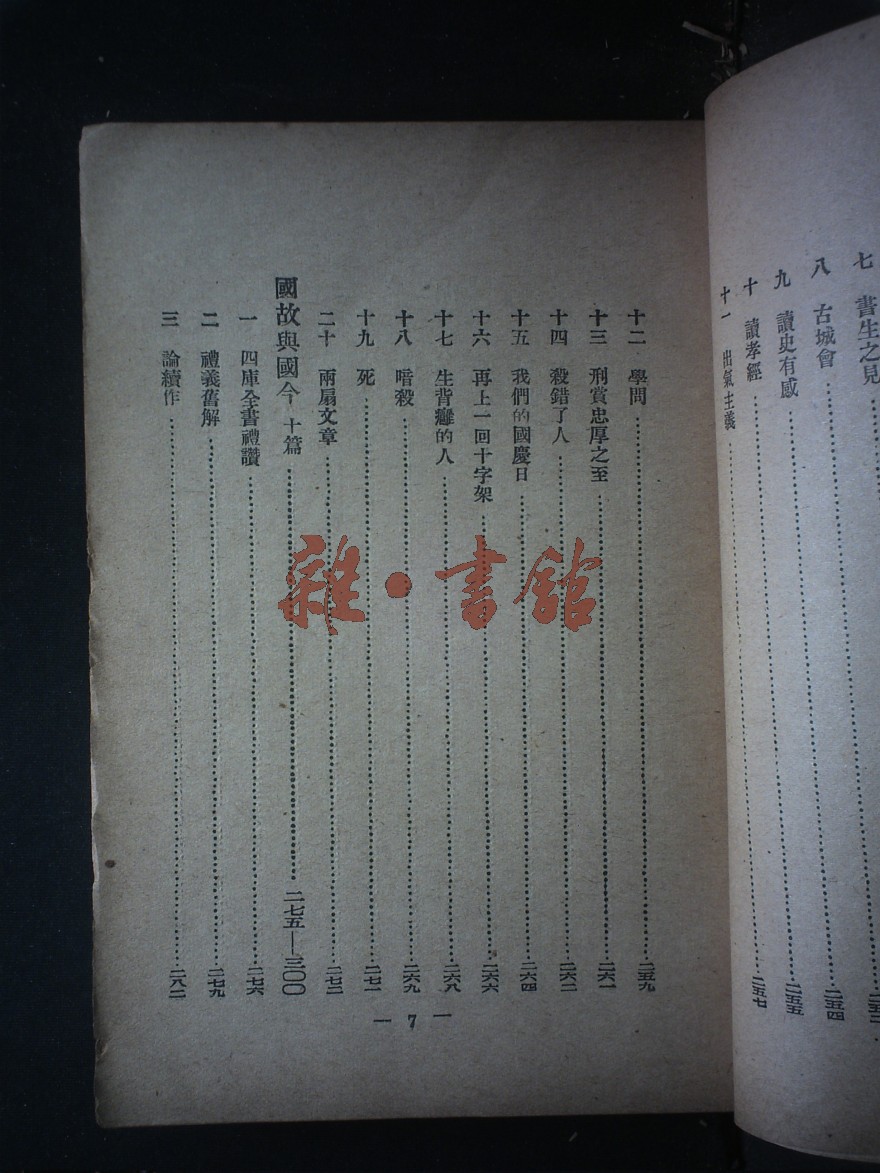 七　書生之見
八　古城會……二五四
九　讀史有感……二五五
十　讀孝經
十一　出氣主義……二五七
十二　學問……二五九
十三　刑賞忠厚之至……二六一
十四　殺錯了人……二六二
十五　我們的國慶日……二六四
十六　再上一回十字架……二六六
十七　生背癰的人……二六八
十八　暗殺……二六九
十九　死……二七一
二十　兩扇文章……二七二
國故與國今　十篇……二七五—三〇〇
一　四庫全書禮讚……二七六
二　禮義舊解……二七九
三　論續作……二八二
— 7 —
雜·書館